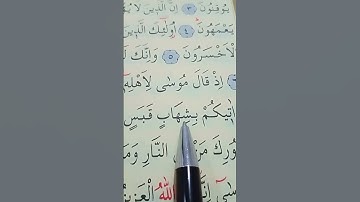 يُوقِنُونَ ٣ اِنَّ الَّذ۪ينَ لَا
يَعْمَهُونَ ٤ اُو۬لٰٓئِكَ الَّذ۪ينَ
الْاَخْسَرُونَ ٥ وَاِنَّكَ
اِذْ قَالَ مُوسٰى لِاَهْلِه۪
اٰت۪يكُمْ بِشِهَابٍ قَبَسٍ
بُورِكَ مَنْ النَّارِ وَمَ
اللّٰهُ الْعَز۪يزُ